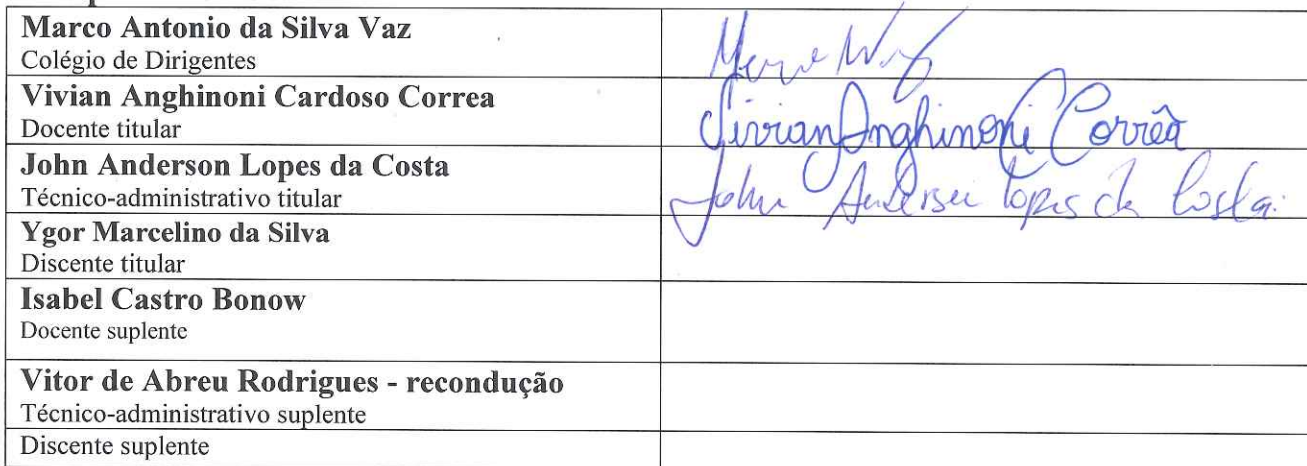 Marco Antonio da Silva Vaz
Colégio de Dirigentes
Vivian Anghinoni Cardoso Correa
Docente titular
Vivian Anghinoni Corrêa
John Anderson Lopes da Costa
Técnico-administrativo titular
John Anderson Lopes da Costa
Ygor Marcelino da Silva
Discente titular
Isabel Castro Bonow
Docente suplente
Vitor de Abreu Rodrigues - recondução
Técnico-administrativo suplente
Discente suplente